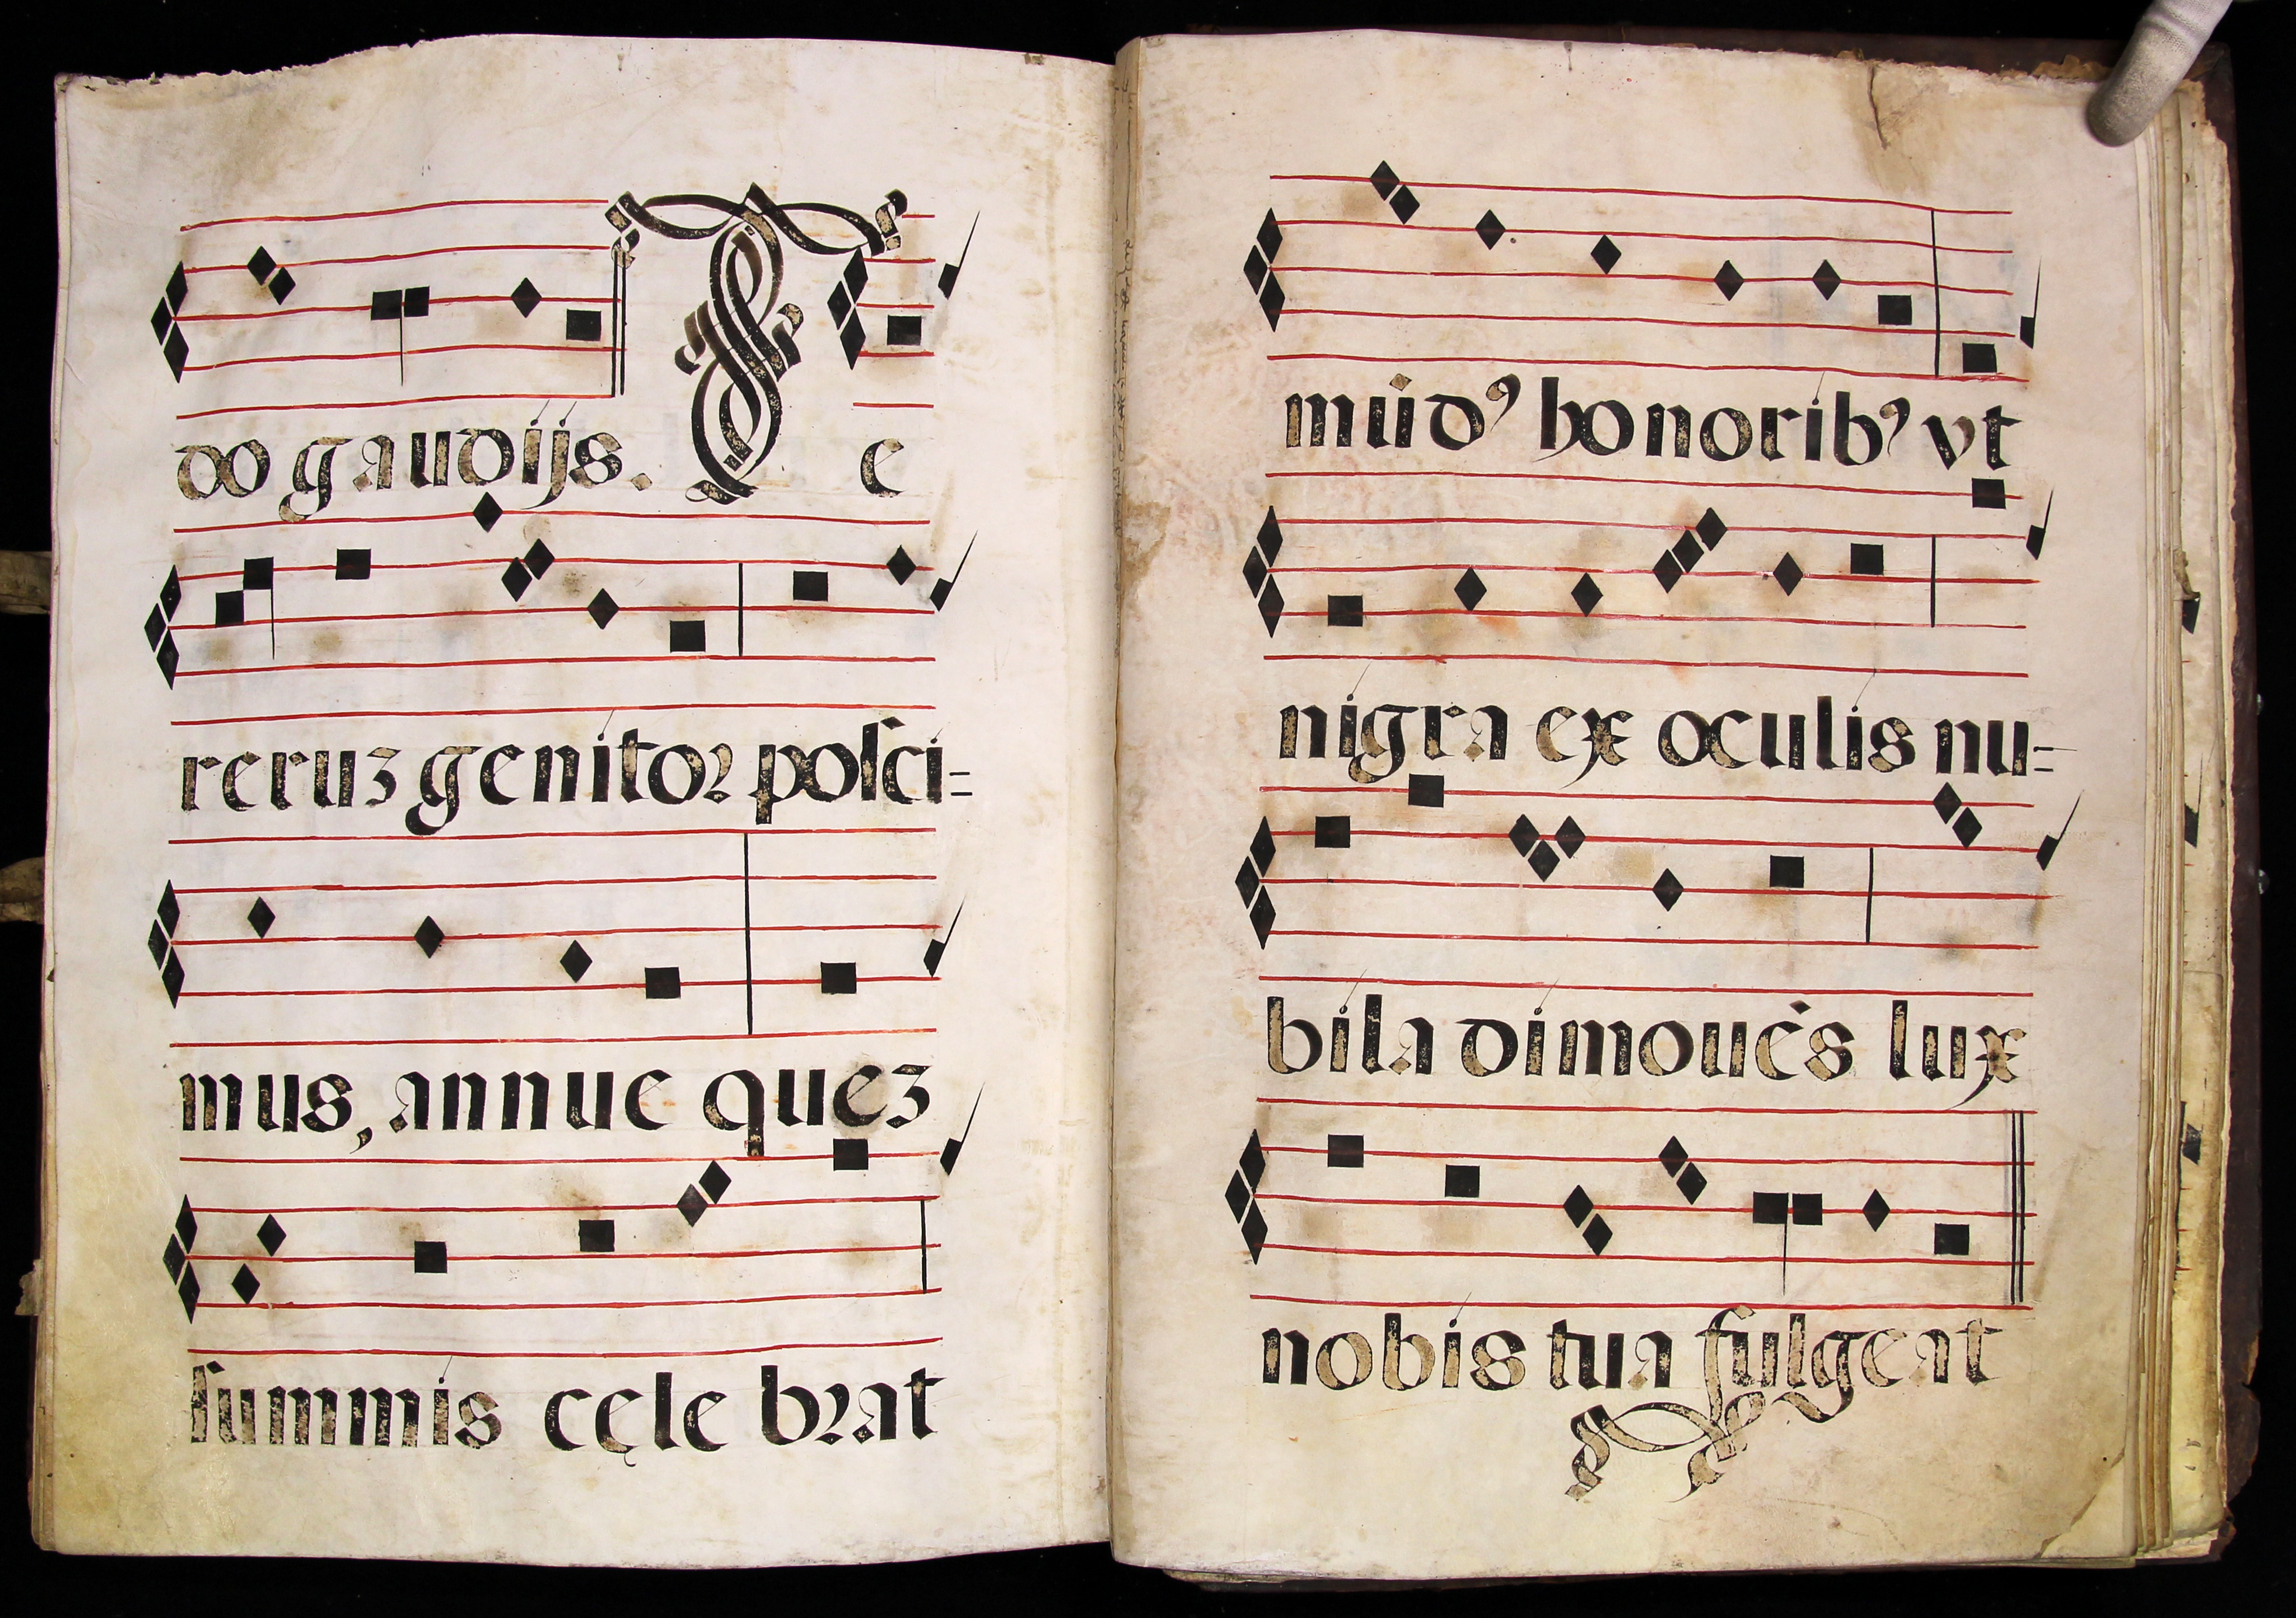 do gaudijs. T e
reruȝ genitoꝛ posci=
mus, annue queȝ
summis cęle bꝛat
mūdꝰ honoribꝰ vt
nigra ex oculis nu=
bila dimouēs lux
nobis tua fulgeat